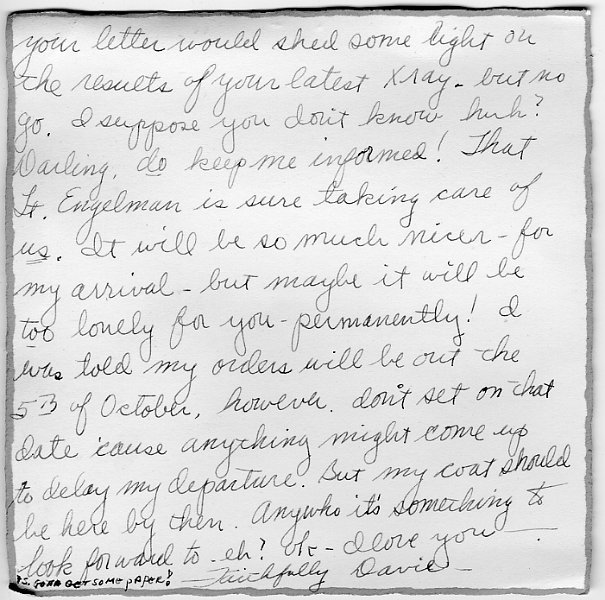 your letter would shed some light on
the results of your latest Xray - but no
go. I suppose you don't know huh?
Darling, do keep me informed! That
Lt. Engelman is sure taking care of
us. It will be so much nicer - for
my arrival - but maybe it will be
too lonely for you - permanently! I
was told my orders will be out the
5TH of October, however, don't set on that
date 'cause anything might come up
to delay my departure. But my coat should
be here by then. Anywho it's something to
look forward to - eh? Ok - I love you -
Faithfully David -
P.S. GOTTA GET SOME PAPER!